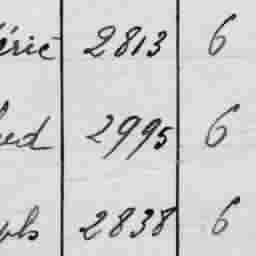 éric 2813 6
ed 2995 6
ph 2838 6